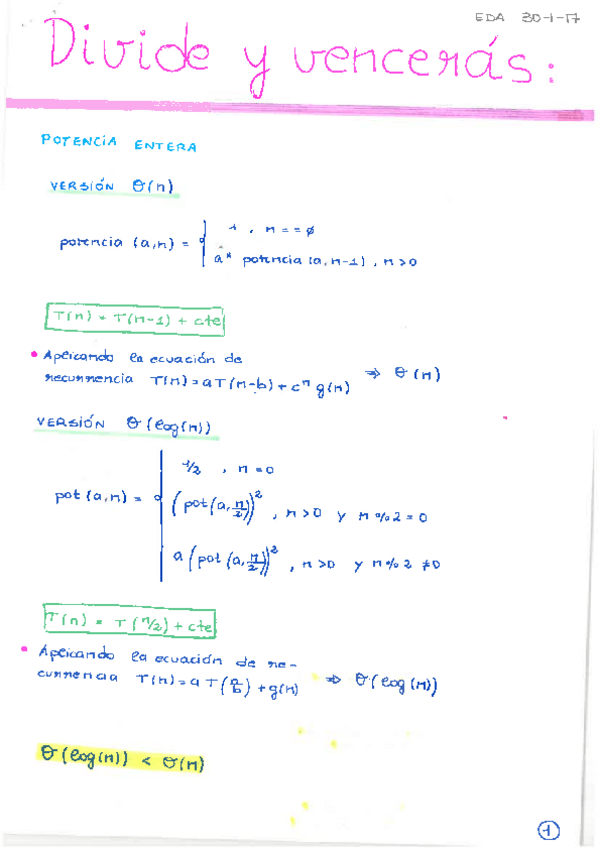 EDA 30-1-17
Divide y vencerás:
POTENCIA ENTERA
VERSIÓN Θ(n)
1 , n == ø
potencia (a,n) =
a* potencia (a, n-1) , n>0
T(n) = T(n-1) + cte
• Aplicando la ecuación de
recurrencia T(n) = aT(n-b) + cⁿ g(n) ⇒ Θ(n)
VERSIÓN Θ(log(n))
1/2 , n=0
pot (a,n) =
(pot(a, n/2))² , n>0 y n%2=0
a (pot (a, n/2))² , n>0 y n%2 ≠0
T(n) = T(n/2) + cte
• Aplicando la ecuación de re-
currencia T(n) = a T(n/b) + g(n) ⇒ Θ(log(n))
Θ(log(n)) < Θ(n)
1